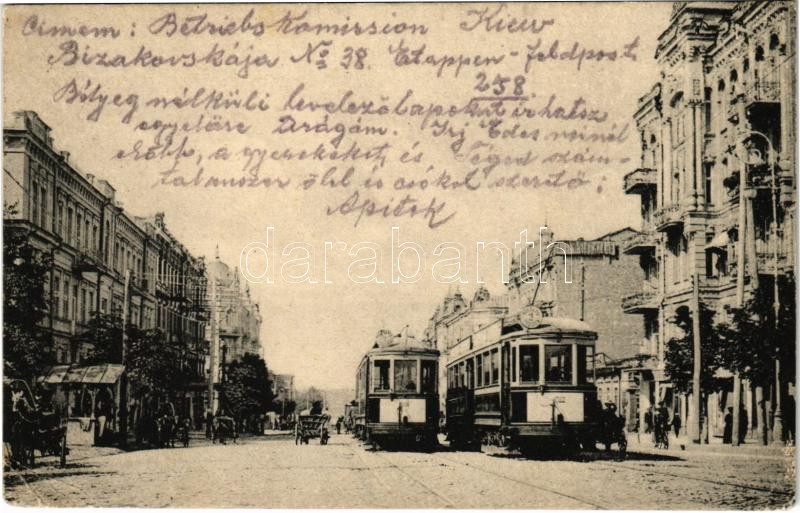 Cimem: Betriebs Komission Kiew
Bizakovskája No 38. Etappen-Feldpost
258
Bélyeg nélküli levelezőlapokat írhatsz
egyelőre Drágám. Irj Édes minél
előbb, a gyerekeket és Téged szám-
talanszor ölel és csókol szerető:
Apitok
darabanth.com